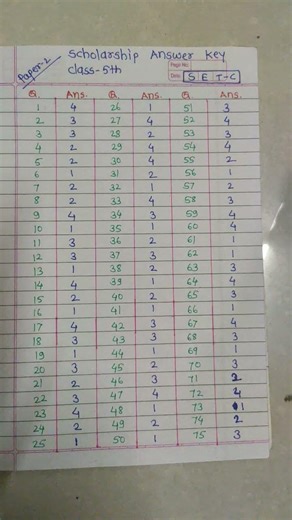 Paper-2
Scholarship Answer Key
Class-5th
Page No.
Date SET-C
Q. Ans. Q. Ans. Q. Ans.
1 4 26 1 51 3
2 3 27 4 52 4
3 3 28 2 53 3
4 2 29 4 54 4
5 2 30 4 55 2
6 1 31 2 56 1
7 2 32 1 57 2
8 2 33 4 58 3
9 4 34 3 59 4
10 1 35 1 60 4
11 3 36 2 61 1
12 3 37 3 62 1
13 1 38 2 63 3
14 4 39 1 64 4
15 2 40 2 65 3
16 1 41 1 66 1
17 4 42 3 67 4
18 3 43 3 68 3
19 1 44 1 69 1
20 3 45 2 70 3
21 2 46 3 71 2
22 3 47 4 72 4
23 4 48 1 73 1
24 2 49 2 74 2
25 1 50 1 75 3